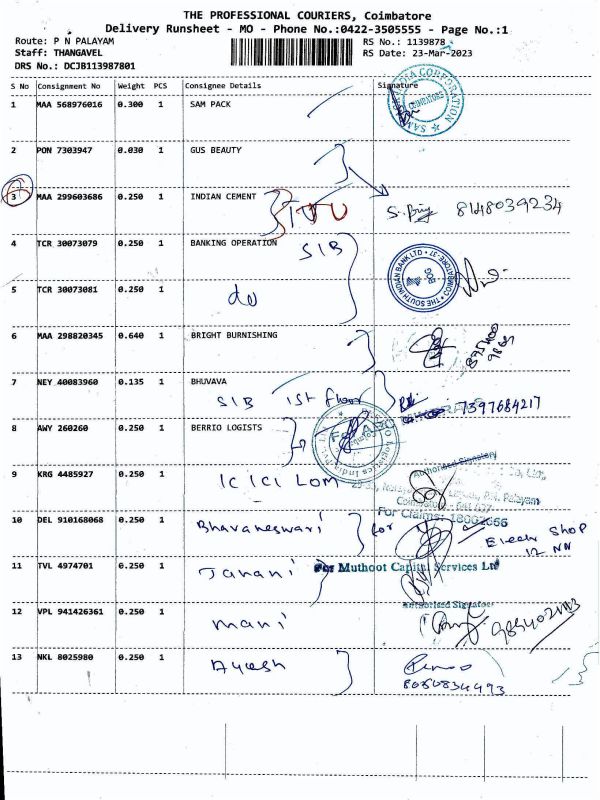 THE PROFESSIONAL COURIERS, Coimbatore
Delivery Runsheet - MO - Phone No.:0422-3505555 - Page No.:1
Route: P N PALAYAM
RS No.: 1139878
Staff: THANGAVEL
RS Date: 23-Mar-2023
DRS No.: DCJB113987801
S No Consignment No Weight PCS Consignee Details Signature
1 MAA 568976016 0.300 1 SAM PACK
2 PON 7303947 0.030 1 GUS BEAUTY
3 MAA 299603686 0.250 1 INDIAN CEMENT 8148039234
4 TCR 30073079 0.250 1 BANKING OPERATION SIB
THE SOUTH INDIAN BANK LTD
5 TCR 30073081 0.250 1 do
6 MAA 298820345 0.640 1 BRIGHT BURNISHING
7 NEY 40083960 0.135 1 BHUVAVA
SIB 1st floor 7397684217
8 AWY 260260 0.250 1 BERRIO LOGISTS
Authorised Signatory
9 KRG 4485927 0.250 1 ICICI LOM
For Claims: 18002666
10 DEL 910168068 0.250 1 Bhavaneswari for
Elech Shop
12 NN
11 TVL 4974701 0.250 1 Janani
For Muthoot Capital Services Ltd
Authorised Signatory
12 VPL 941426361 0.250 1 mani
13 NKL 8025980 0.250 1 Ayesh
8050834493